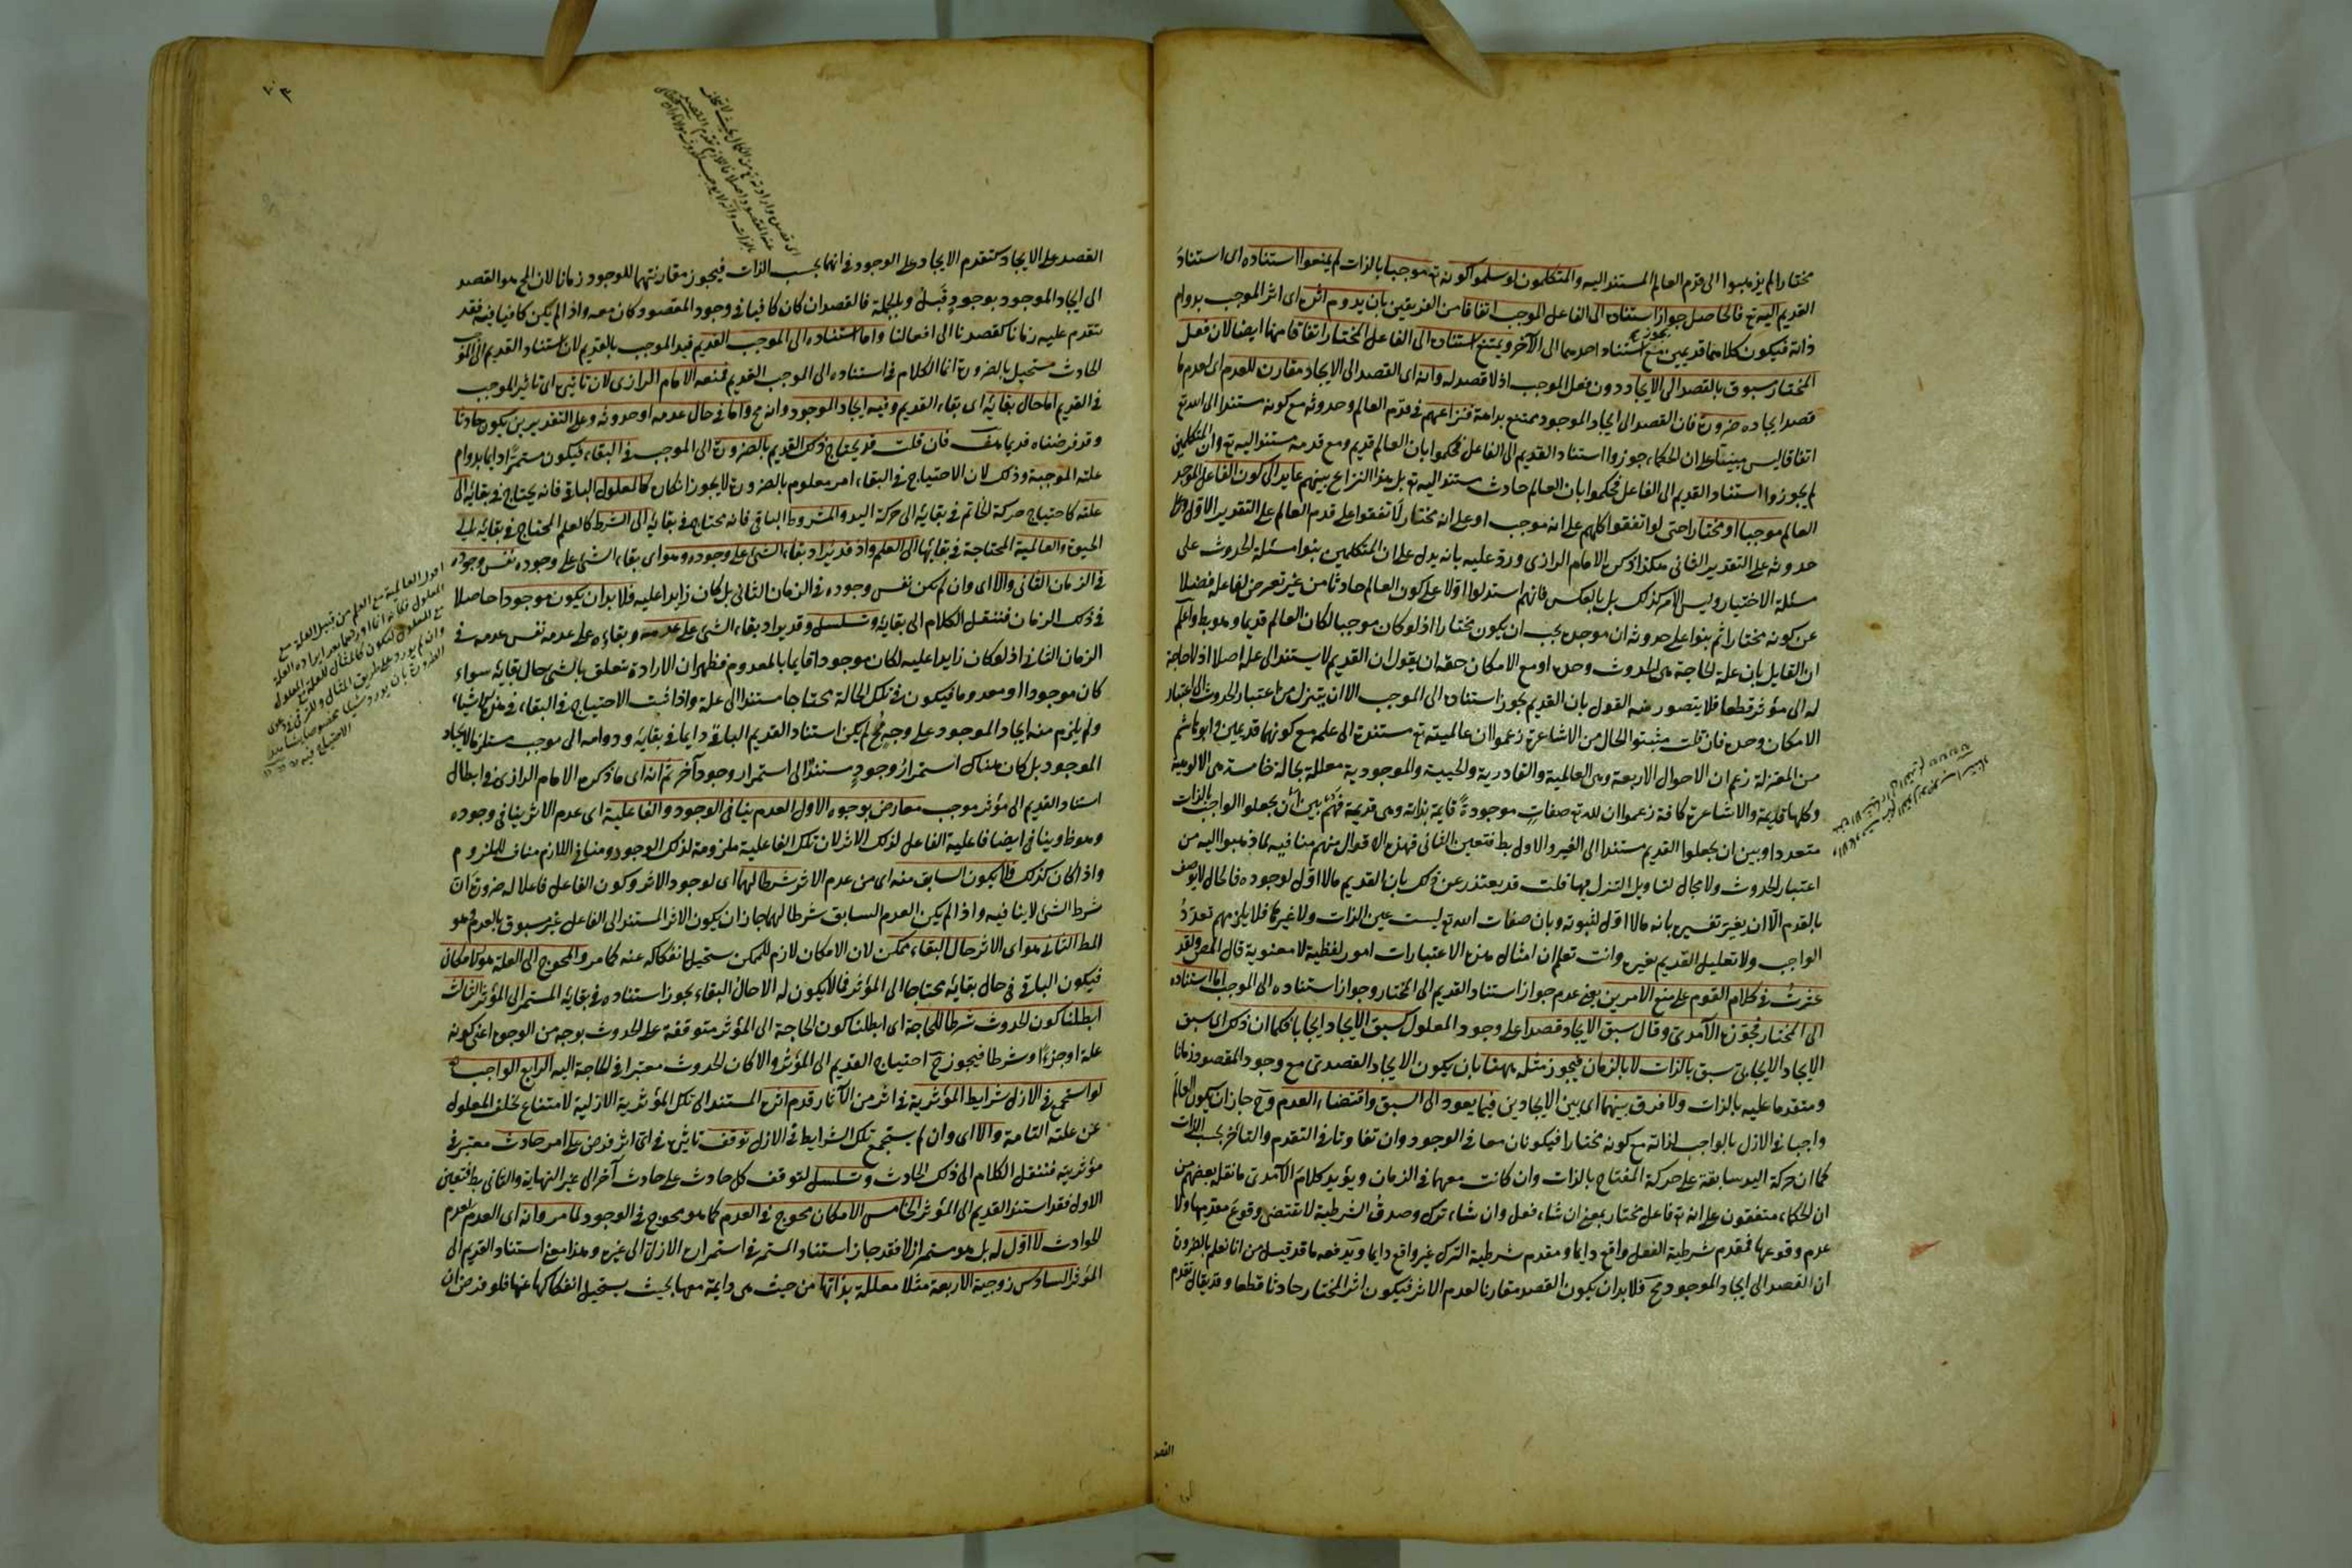 مختارا لم يذهبوا الى قدم العالم المستند اليه والمتكلمون لو سلموا كونه تع موجبا بالذات لم يمنعوا استناده اى استناد
القديم اليه تع فالحاصل جواز استناده الى الفاعل الموجب اتفاقا من الفريقين بان يدوم اثره اى اثر الموجب بدوام
ذاته فيكون كلاهما قديمين مع استناد احدهما الى الآخر ويمتنع استناده الى الفاعل المختار اتفاقا منهما ايضا لان فعل
المختار مسبوق بالقصد الى الايجاد دون فعل الموجب اذ لا قصد له وانه اى القصد الى الايجاد مقارن للعدم اى لعدم ما
قصد ايجاده ضرورة فان القصد الى ايجاد الموجود ممتنع بداهة فنزاعهم فى قدم العالم وحدوثه مع كونه مستندا الى الله تع
اتفاقا ليس مبنيا على ان الحكماء جوزوا استناد القديم الى الفاعل فحكموا بان العالم قديم ومع قدمه مستند اليه تع وان المتكلمين
لم يجوزوا استناد القديم الى الفاعل فحكموا بان العالم حادث مستند اليه تع بل هذا النزاع بينهم عايد الى كون الفاعل الموجد
العالم موجبا او مختارا حتى لو اتفقوا كلهم على انه موجب او على انه مختار لاتفقوا على قدم العالم على التقدير الاول وعلى
حدوثه على التقدير الثانى هكذا ذكره الامام الرازى ورد عليه بانه يدل على ان المتكلمين بنوا مسئلة الحدوث على
مسئلة الاختيار وليس الامر كذلك بل بالعكس فانهم استدلوا اولا على كون العالم حادثا من غير تعرض لفاعله فضلا
عن كونه مختارا ثم بنوا على حدوثه ان موجده يجب ان يكون مختارا اذ لو كان موجبا لكان العالم قديما وهو بط واعلم
ان القايل بان علة الحاجة هى الحدوث وحده او مع الامكان حقه ان يقول ان القديم لا يستند الى علة اصلا اذ لا حاجة
له الى مؤثر قطعا فلا يتصور منه القول بان القديم يجوز استناده الى الموجب الا ان يتنزل من اعتبار الحدوث الى اعتبار
الامكان وحده فان قلت مثبتو الحال من الاشاعرة زعموا ان عالميته تع مستندة الى علمه مع كونهما قديمين وابو هاشم
من المعتزلة زعم ان الاحوال الاربعة وهى العالمية والقادرية والحيية والموجودية معللة بحالة خامسة هى الالوهية
وكلها قديمة والاشاعرة كافة زعموا ان لله تع صفات موجودةً قايمة بذاته وهى قديمة فهم بين ان يجعلوا الواجب بالذات
متعددا وبين ان يجعلوا القديم مستندا الى الغير والاول بط فتعين الثانى فهذه الاقوال منهم منافيه لما ذهبوا اليه من
اعتبار الحدوث ولا مجال لتاويل التنزل فيها قلت قد يعتذر عن ذلك بان القديم ما لا اول لوجوده فالحال لا يوصف
بالقدم الا ان يغير تفسيره بانه ما لا اول لثبوته وبان صفات الله تع ليست عين الذات ولا غيرها فلا يلزمهم تعددُ
الواجب ولا تعليل القديم بغيره وانت تعلم ان امثال هذه الاعتبارات امور لفظية لا معنوية قال المص ولقد
عثرتُ فى كلام القوم على منع الامرين يعنى عدم جواز استناد القديم الى المختار وجواز استناده الى الموجب اما استناده
الى المختار فجوّزه الآمدى وقال سبق الايجاد قصدا على وجود المعلول كسبق الايجاد ايجابا فكما ان ذلك اى سبق
الايجاد الايجابى سبق بالذات لا بالزمان فيجوز مثله ههنا بان يكون الايجاد القصدى مع وجود المقصود زمانا
ومتقدما عليه بالذات ولا فرق بينهما اى بين الايجادين فيما يعود الى السبق واقتضاء العدم وح جاز ان يكون العالم
واجبا فى الازل بالواجب لذاته مع كونه مختارا فيكونان معا فى الوجود وان تفاوتا فى التقدم والتاخر بحسب الذات
كما ان حركة اليد سابقة على حركة المفتاح بالذات وان كانت معها فى الزمان ويؤيد كلامَ الآمدى ما نقله بعضهم من
ان الحكماء متفقون على انه تع فاعل مختار بمعنى ان شاء فعل وان شاء ترك وصدق الشرطية لا تقتضى وقوع مقدمها ولا
عدم وقوعها فمقدم شرطية الفعل واقع دايما ومقدم شرطية الترك غير واقع دايما ويدفعه ما قد قيل من انا نعلم بالضرورة
ان القصد الى ايجاد الموجود مح فلا بد ان يكون القصد مقارنا لعدم الاثر فيكون اثر المختار حادثا قطعا وقد يقال تقدم
القصد
القصد على الايجاد كتقدم الايجاد على الوجود فى انهما بحسب الذات فيجوز مقارنتهما للوجود زمانا لان المح هو القصد
الى ايجاد الموجود بوجودٍ قَبلُ وبالجملة فالقصد ان كان كافيا فى وجود المقصود كان معه واذا لم يكن كافيا فيه فقد
يتقدم عليه زمانا كقصدنا الى افعالنا واما استناده الى الموجب القديم قيد الموجب بالقديم لان استناد القديم الى الموجب
الحادث مستحيل بالضرورة انما الكلام فى استناده الى الموجب القديم فمنعه الامام الرازى لان تاثيره اى تاثير الموجب
فى القديم اما حال بقايه اى بقاء القديم وفيه ايجاد الموجود وانه مح واما فى حال عدمه او حدوثه وعلى التقديرين يكون حادثا
وقد فرضناه قديما هف فان قلت قد يحتاج ذلك القديم بالضرورة الى الموجب فى البقاء فيكون مستمرا دايما بدوام
علته الموجبة وذلك لان الاحتياج فى البقاء امر معلوم بالضرورة لا يجوز انكاره كالمعلول الباقى فانه يحتاج فى بقايه الى
علته كاحتياج حركة الخاتم فى بقايه الى حركة اليد والمشروط الباقى فانه محتاج فى بقايه الى الشرط كالعلم المحتاج فى بقايه الى
الحيوة والعالمية المحتاجة فى بقايها الى العلم واذ قد يُراد بقاء الشىء على وجوده وهو اى بقاء الشىء على وجوده نفس وجوده
فى الزمان الثانى والا اى وان لم يكن نفس وجوده فى الزمان الثانى بل كان زايدا عليه فلا بد ان يكون موجودا حاصلا
فى ذلك الزمان فننقل الكلام الى بقايه وتسلسل وقد يراد بقاء الشىء على عدمه وبقاءه على عدمه نفس عدمه فى
الزمان الثانى اذ لو كان زايدا عليه لكان موجودا قايما بالمعدوم فظهر ان الارادة متعلق بالشىء حال بقايه سواء
كان موجودا او معدوما فيكون فى تلك الحالة محتاجا مستندا الى علة واذا ثبت الاحتياج فى البقاء فى هذه الاشياء
ولم يلزم منه ايجاد الموجود على وجهٍ مح لم يكن استناد القديم الباقى دايما فى بقايه ودوامه الى موجب مستلزما لايجاد
الموجود بل كان هناك استمرارُ وجودٍ مستندٌ الى استمرار وجود آخر ثم انه اى ما ذكره الامام الرازى فى ابطال
استناد القديم الى مؤثر موجب معارض بوجوه الاول العدم ينافى الوجود والفاعلية اى عدم الاثر ينافى وجوده
وهو ظ وينافى ايضا فاعلية الفاعل لذلك الاثر لان تلك الفاعلية ملزومة لذلك الوجود ومنافى اللازم مناف للملزوم
واذا كان كذلك فلا يكون السابق منه اى من عدم الاثر شرطا لهما اى لوجود الاثر وكون الفاعل فاعلا له ضرورة ان
شرط الشىء لا ينافيه واذا لم يكن العدم السابق شرطا لهما جاز ان يكون الاثر المستند الى الفاعل غير مسبوق بالعدم وهو
المط الثانى هو اى الاثر حال البقاء ممكن لان الامكان لازم للممكن يستحيل انفكاكه عنه كما مر والمحوج الى العلة هو الامكان
فيكون الباقى فى حال بقايه محتاجا الى المؤثر فما لا يكون له الا حال البقاء يجوز استناده فى بقايه المستمر الى المؤثر الثالث
ابطلنا كون الحدوث شرطا للحاجة اى ابطلنا كون الحاجة الى المؤثر متوقفة على الحدوث بوجه من الوجوه اعنى كونه
علة او جزءًا او شرطا فيجوز ح احتياج القديم الى المؤثر والا كان الحدوث معتبرا فى الحاجة اليه الرابع الواجب تع
لو استجمع فى الازل شرايط المؤثرية فى اثر من الآثار قدم اثره المستند الى تلك المؤثرية الازلية لامتناع تخلف المعلول
عن علته التامة والا اى وان لم يستجمع تلك الشرايط فى الازل توقف تاثيره فى اى اثر فرض على امر حادث معتبر فى
مؤثريته فننقل الكلام الى ذلك الحادث وتسلسل لتوقف كل حادث على حادث آخر الى غير النهاية والثانى بط فتعين
الاول فقد استند القديم الى المؤثر الخامس الامكان محوج فى العدم كما هو محوج فى الوجود لما مر وانه اى العدم لعدم
الحوادث لا اول له بل هو مستمر ازلا فقد جاز استناد المستمر فى استمراره الازلى الى غيره وهذا معنى استناد القديم الى
المؤثر السادس زوجية الاربعة مثلا معللة بذاتها من حيث هى دايمة معها بحيث يستحيل انفكاكها عنها فلو فرض ان
اقول العالمية مع العلم من قبيل العلة مع